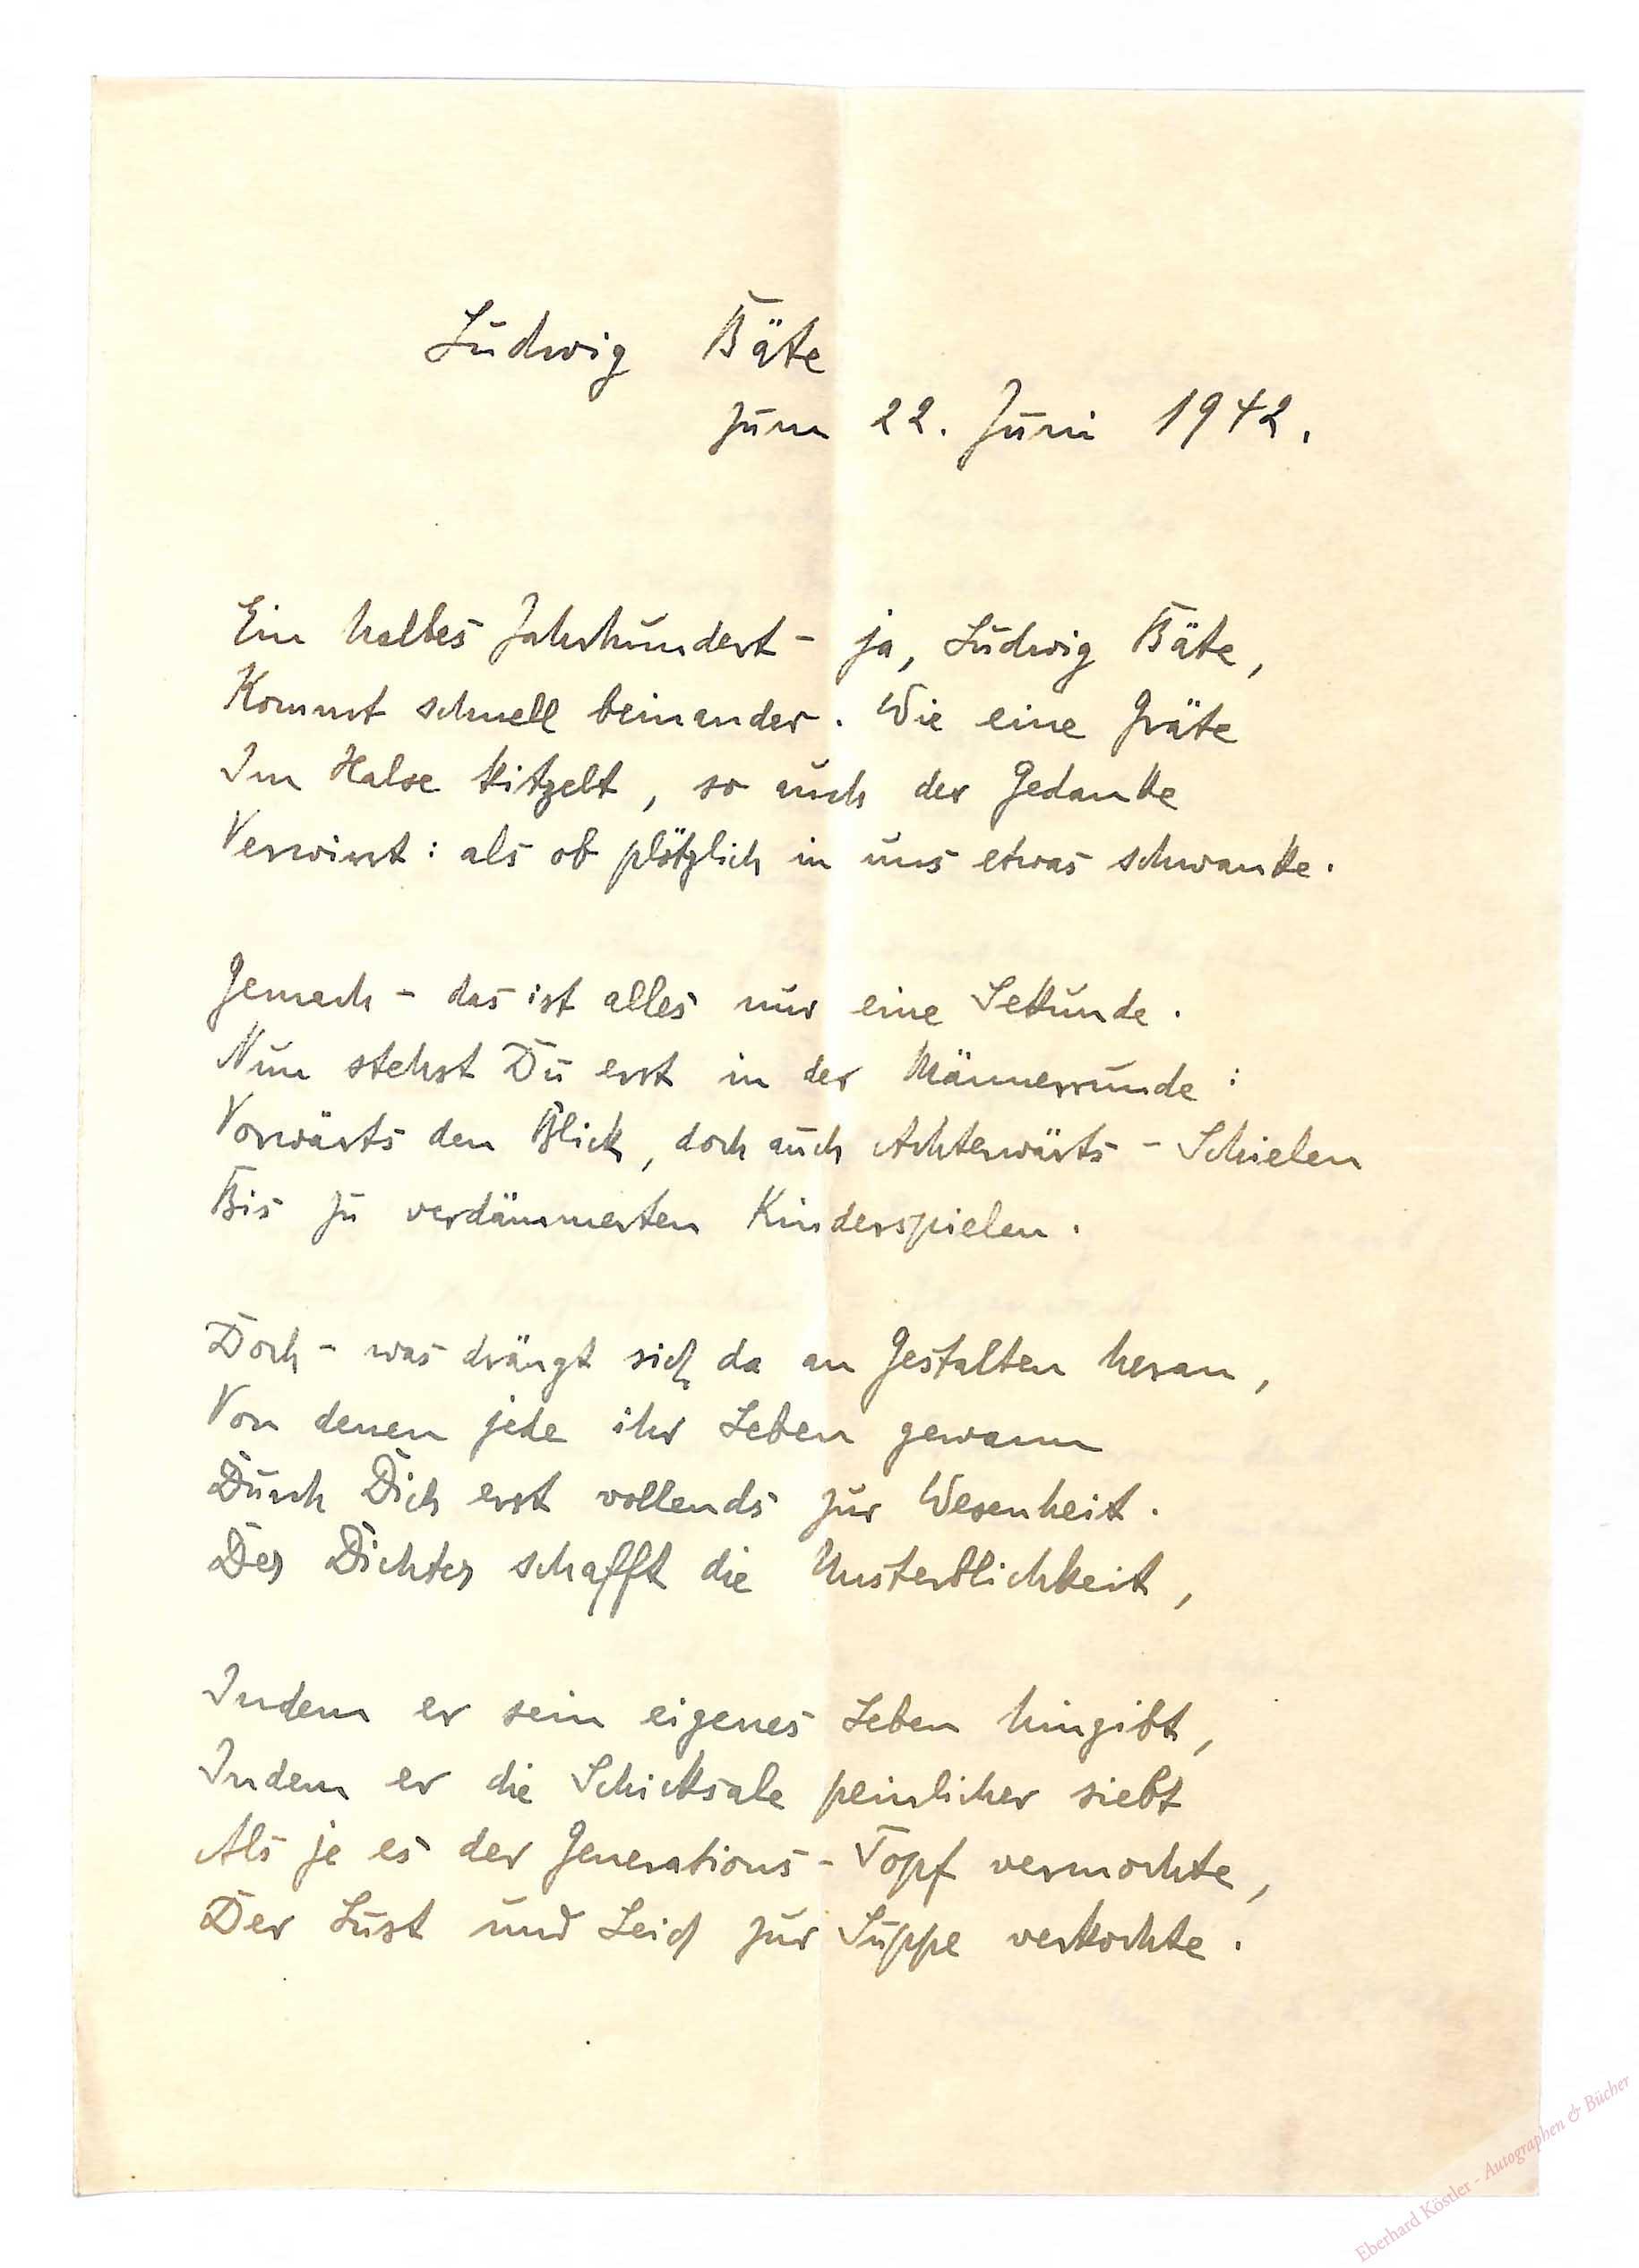 Ludwig Bäte
zum 22. Juni 1942.
Ein halbes Jahrhundert - ja, Ludwig Bäte,
Kommt schnell beinander. Wie eine Gräte
Im Halse kitzelt, so auch der Gedanke
Verwirrt: als ob plötzlich in uns etwas schwanke.
Gemach - das ist alles nur eine Sekunde.
Nun stehst Du erst in der Männerrunde:
Vorwärts den Blick, doch auch Achterwärts-Schielen
Bis zu verdämmerten Kinderspielen.
Doch - was drängt sich da an Gestalten heran,
Von denen jede ihr Leben gewann
Durch Dich erst vollends zur Wesenheit.
Der Dichter schafft die Unsterblichkeit,
Indem er sein eigenes Leben hingibt,
Indem er die Schicksale peinlicher siebt
Als je es der Generations-Topf vermochte,
Der Lust und Leid zur Suppe verkochte.
Eberhard Köstler - Autographen & Bücher